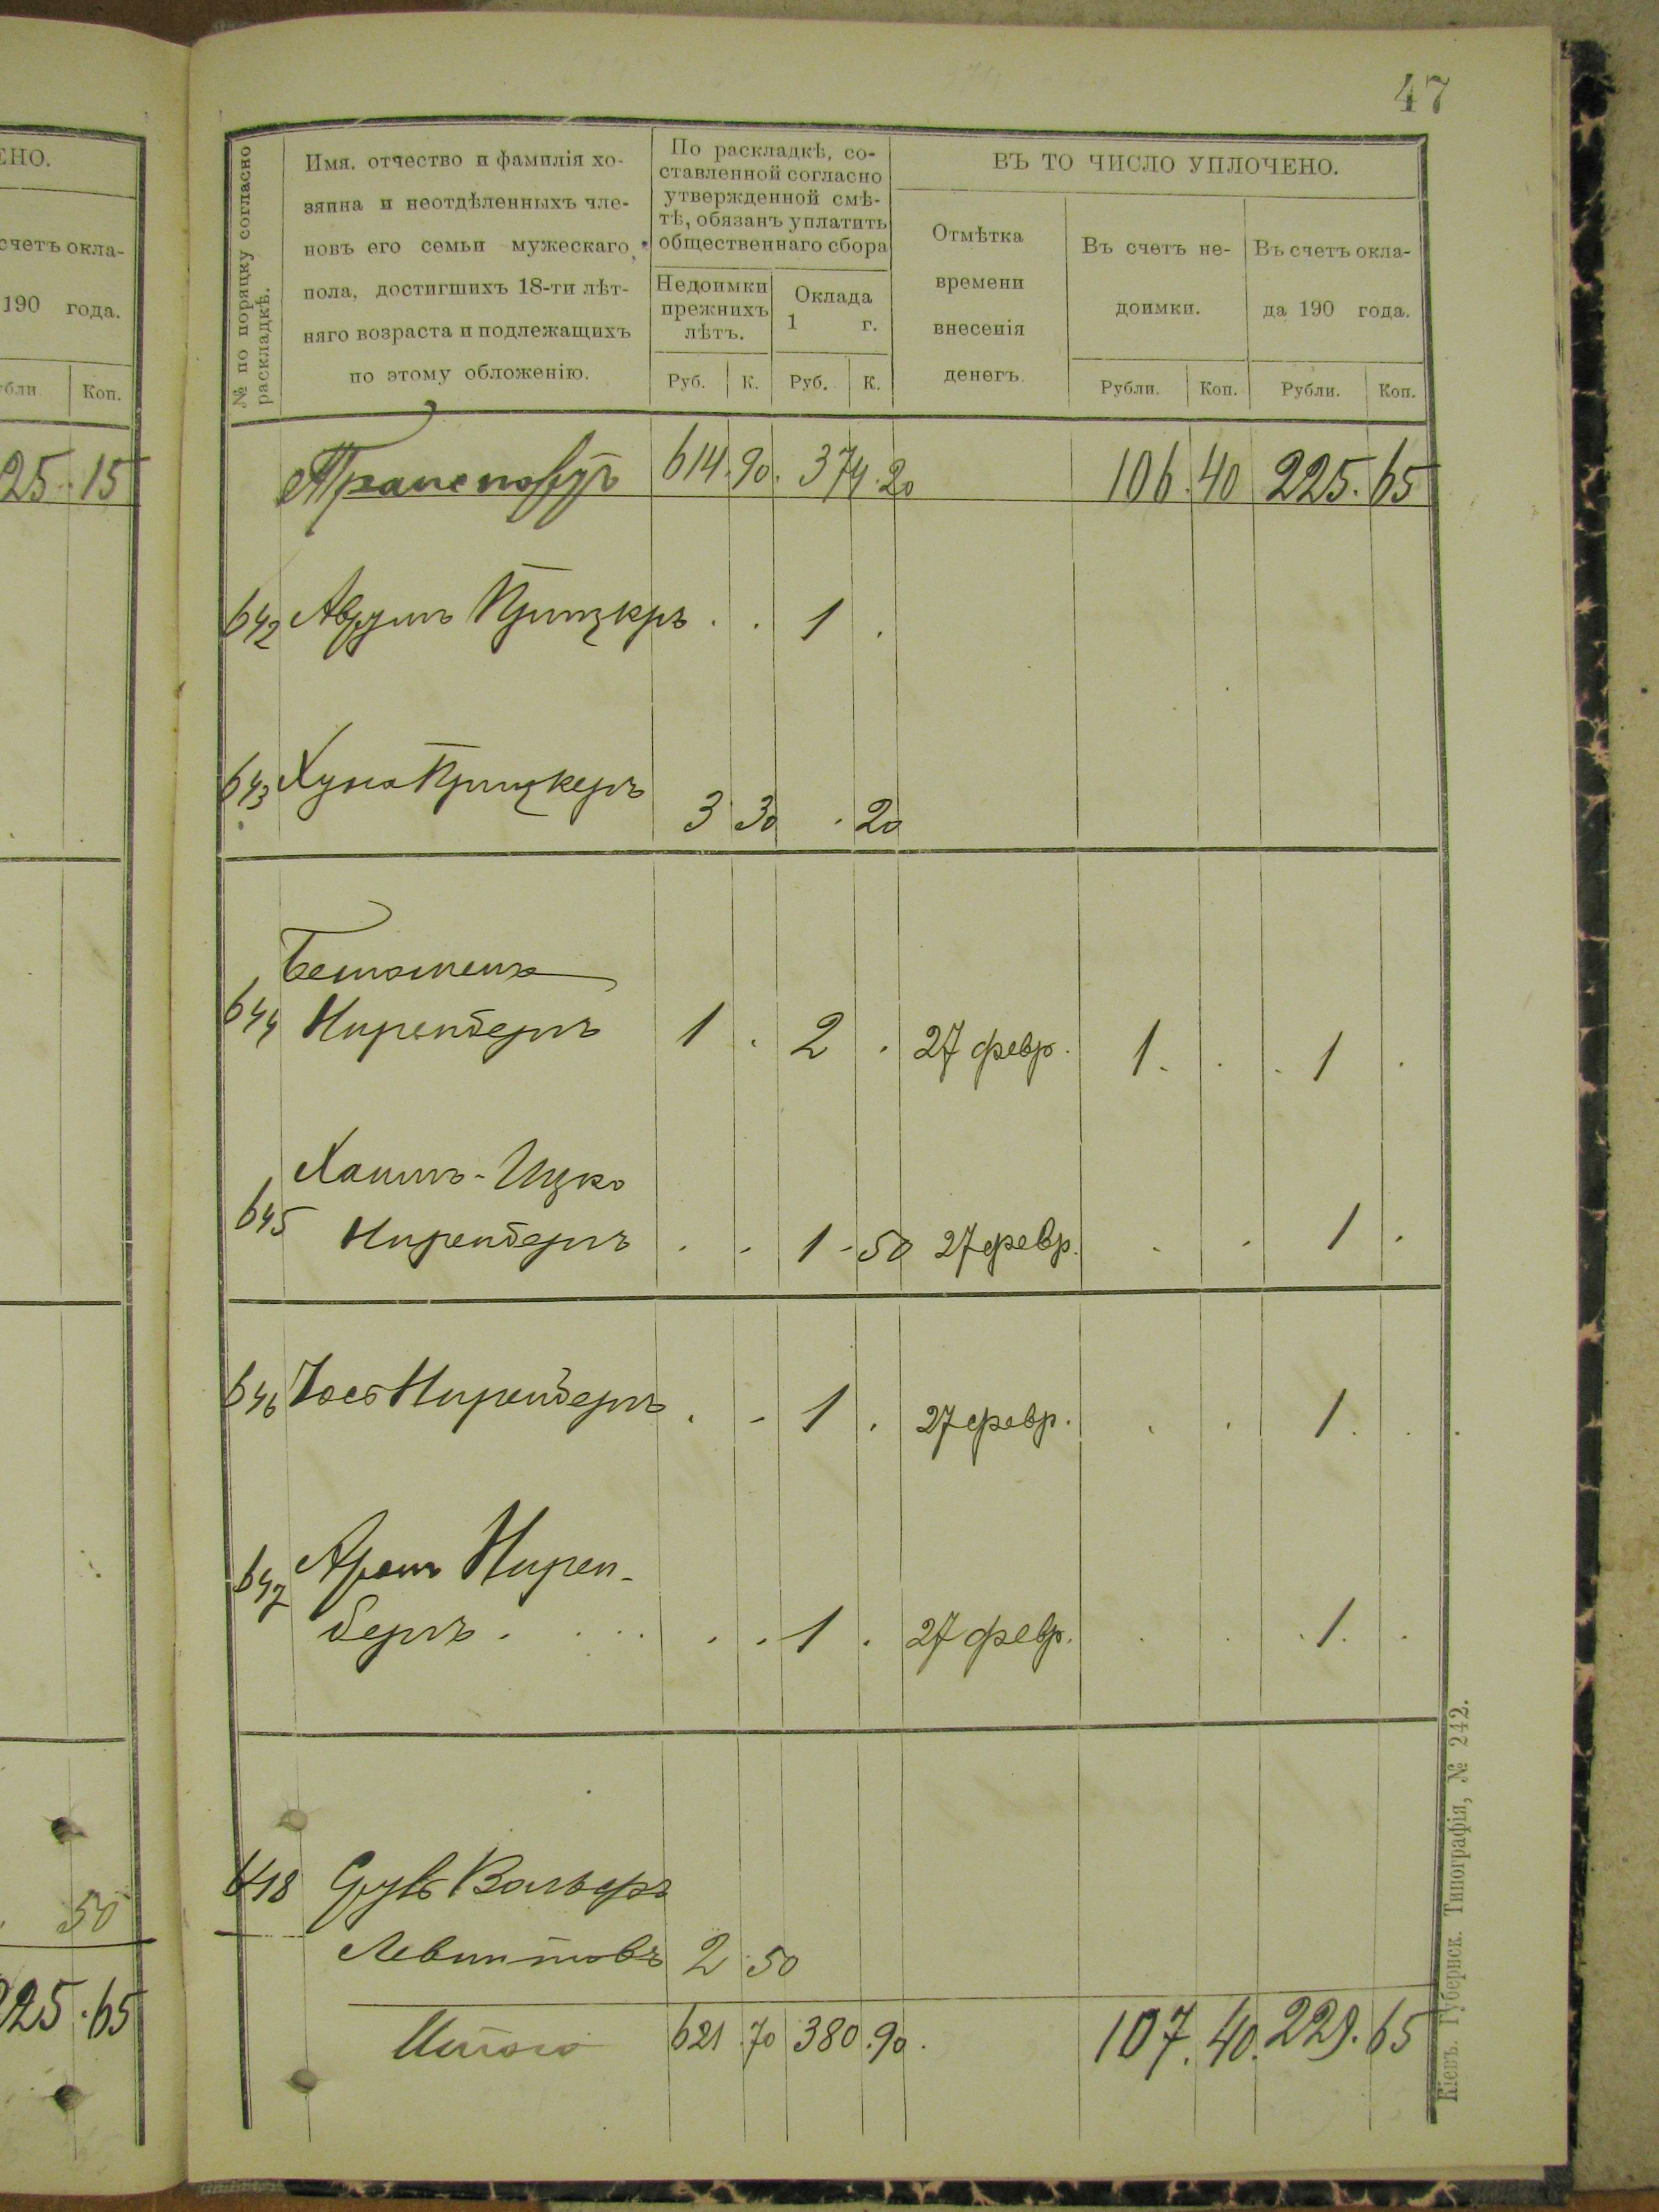 47
ЕНО.
счетъ окла-
190 года.
Коп.
25 . 15
50
225 . 65
№ по порядку согласно
раскладкѣ.
Имя. отчество и фамилія хо-
зяина и неотдѣленныхъ чле-
новъ его семьи мужескаго
пола, достигшихъ 18-ти лѣт-
няго возраста и подлежащихъ
по этому обложенію.
По раскладкѣ, со-
ставленной согласно
утвержденной смѣ-
тѣ, обязанъ уплатить
общественнаго сбора
Недоимки
прежнихъ
лѣтъ.
Оклада
1 г.
Руб. К. Руб. К.
ВЪ ТО ЧИСЛО УПЛОЧЕНО.
Отмѣтка
времени
внесенія
денегъ.
Въ счетъ не-
доимки.
Въ счетъ окла-
да 190 года.
Рубли. Коп. Рубли. Коп.
Транспортъ 614 . 90 . 374 . 20 106 . 40 225 . 65
642 Аврумъ Прицкеръ . . 1 .
643 Хуна Прицкеръ
3 30 . 20
644 Ниренбергъ 1 . 2 . 27 февр. 1 . . . 1 .
Хаимъ-Ицко
645 Ниренбергъ . . 1 - 50 27 февр. . . 1 .
646 Іось Ниренбергъ . . 1 . 27 февр. . . 1 .
647 Аронъ Нирен-
бергъ . . . . . . 1 . 27 февр. . . . 1 . .
Срулъ Вольфъ
Левинтовъ 2 50
Итого 621 . 70 380 . 90 . 107 . 40 . 229 . 65
Кіевъ. Губернск. Типографія, № 242.